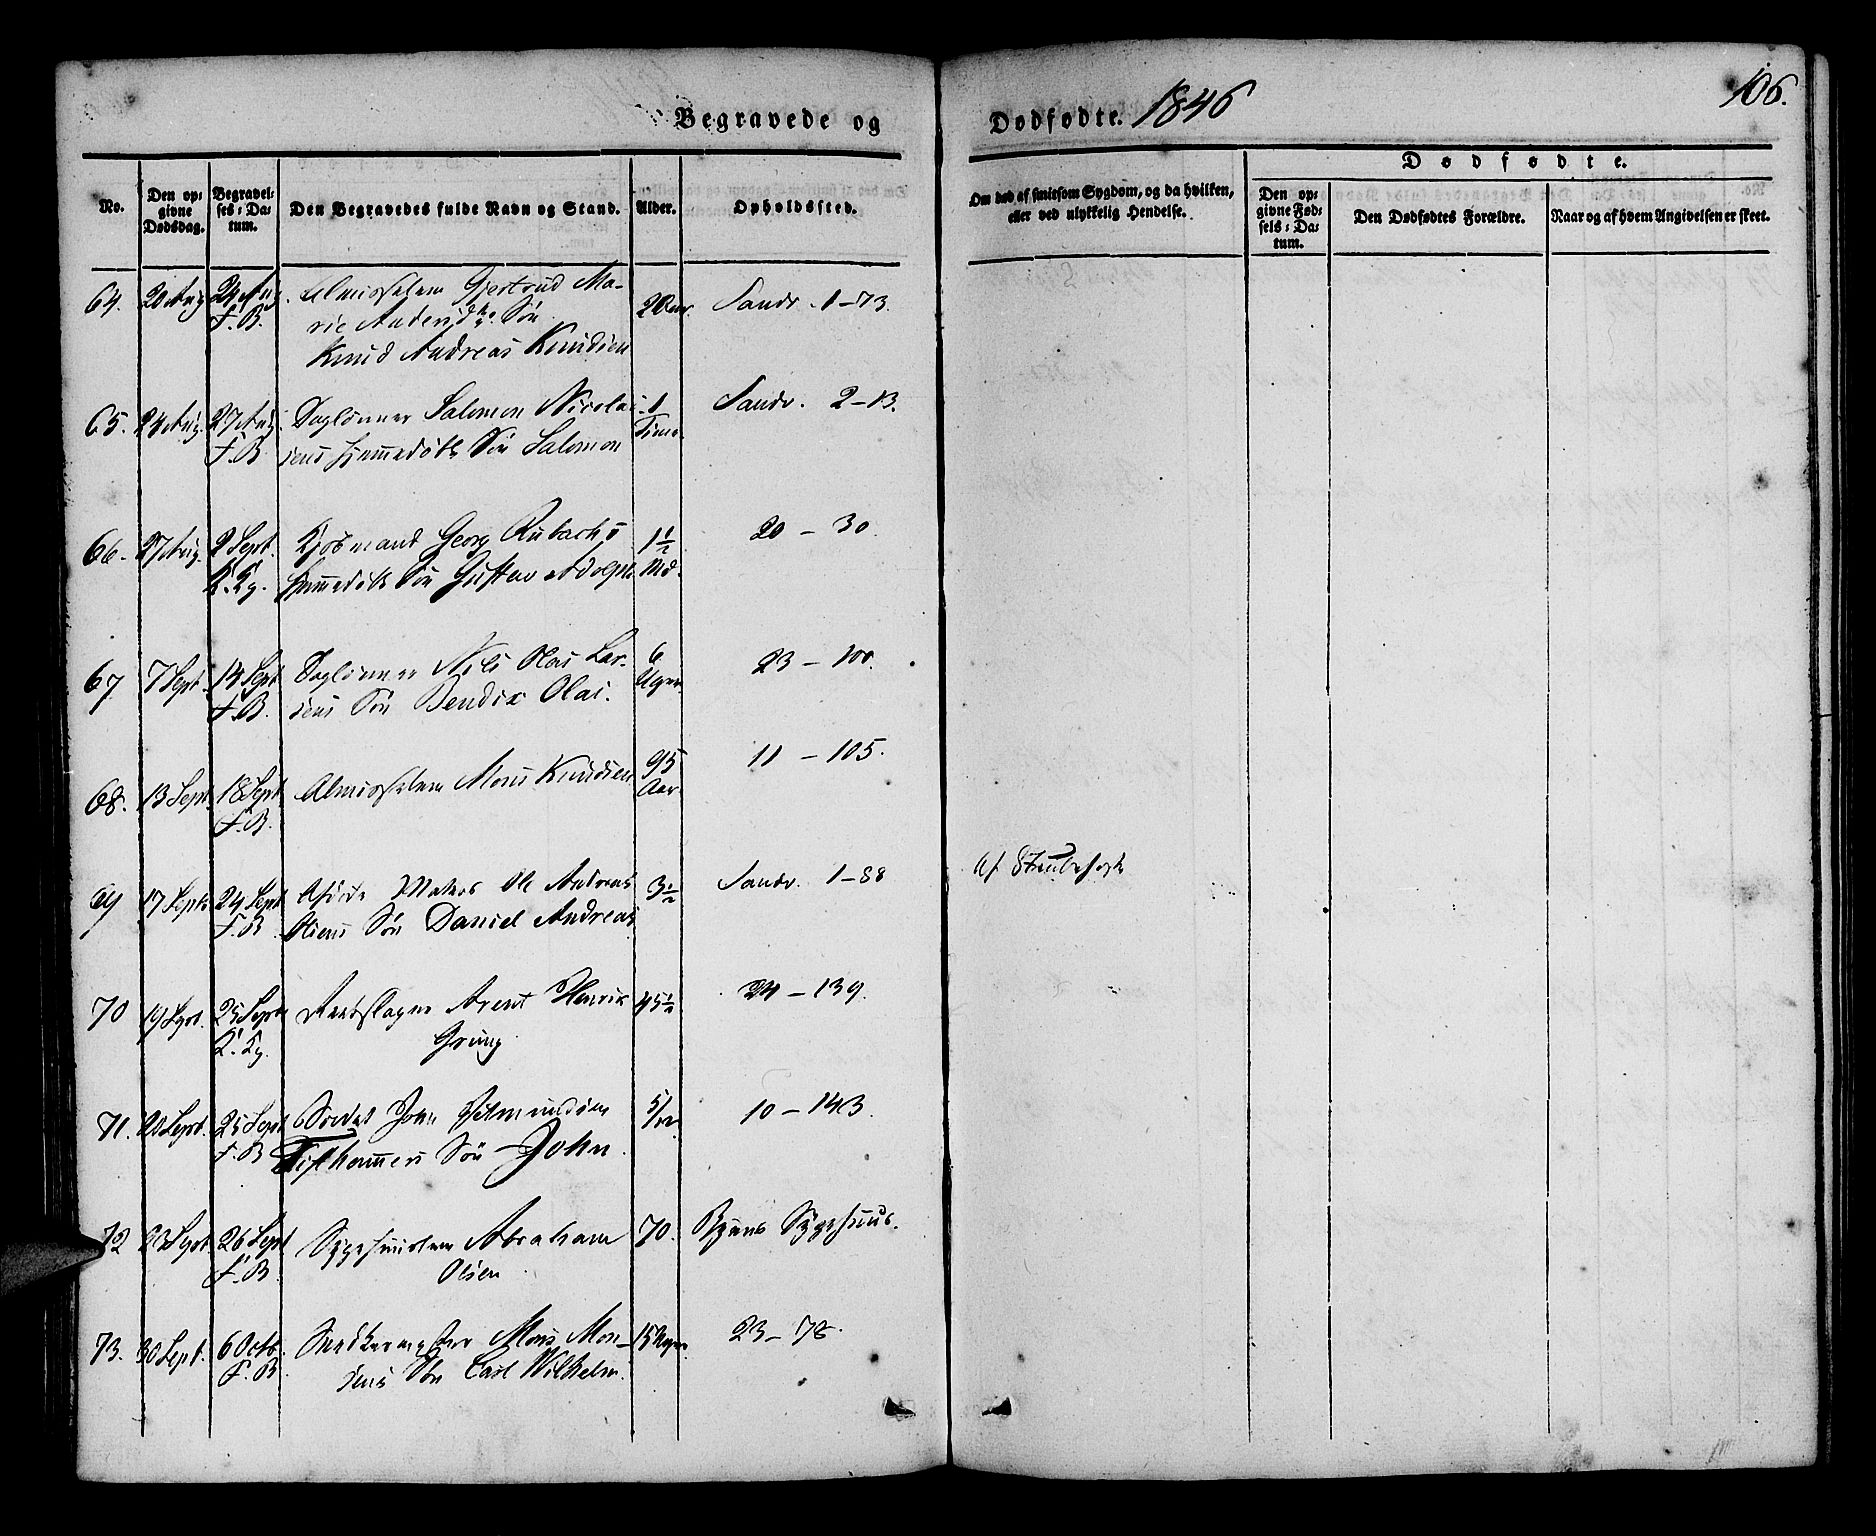 Begravede og Dødfødte. 1846
106.
No. Den opgivne Dødsdag. Begravelses-Datum. Den Begravedes fulde Navn og Stand. Alder. Opholdssted. Om død af smitsom Sygdom, og da hvilken, eller ved ulykkelig Hendelse.
Dødfødte.
Den opgivne Fødsels-Datum. Den Dødfødtes Forældre. Naar og af hvem Angivelsen er skeet.
64. 20 Aug 24 Aug Gjertrud Ma- Sandv. 1-73.
F.B. rie Søn
Knud Andreas Knudsen
65. 24 Aug. 27 Aug. Salomon Nicolai- 1 Sandv. 2-13.
F.B. sens Søn Salomon
66. 27 Aug. 2 Sept. Georg Rubachs 1½ 20 - 30.
Søn Gustav Adolph Md.
67 7 Sept. 14 Sept Nils Olai Lar- 6 23 - 100.
F.B. sens Søn Bendix Olai. Uger
68. 13 Sept. 18 Sept Mons Knudsen 95 11 - 105.
F.B. Aar
69 17 Sept 24 Sept Ole Andreas 3½ Sandv. 1-88 Af Strubehoste
F.B. Olsens Søn Daniel Andreas
70 19 Sept. 25 Sept Arent Henrik 45½ 24 - 139.
Grung
71. 20 Sept. 25 Sept John 5/12 10 - 143.
F.B. Søn John
72 23 Sept 26 Sept Abraham 70. Byens Sygehuus.
F.B. Olsen
73. 30 Sept. 6 Octb. Mons Mon- 15 Uger 23 - 78.
F.B. sens Søn Carl Wilhelm.